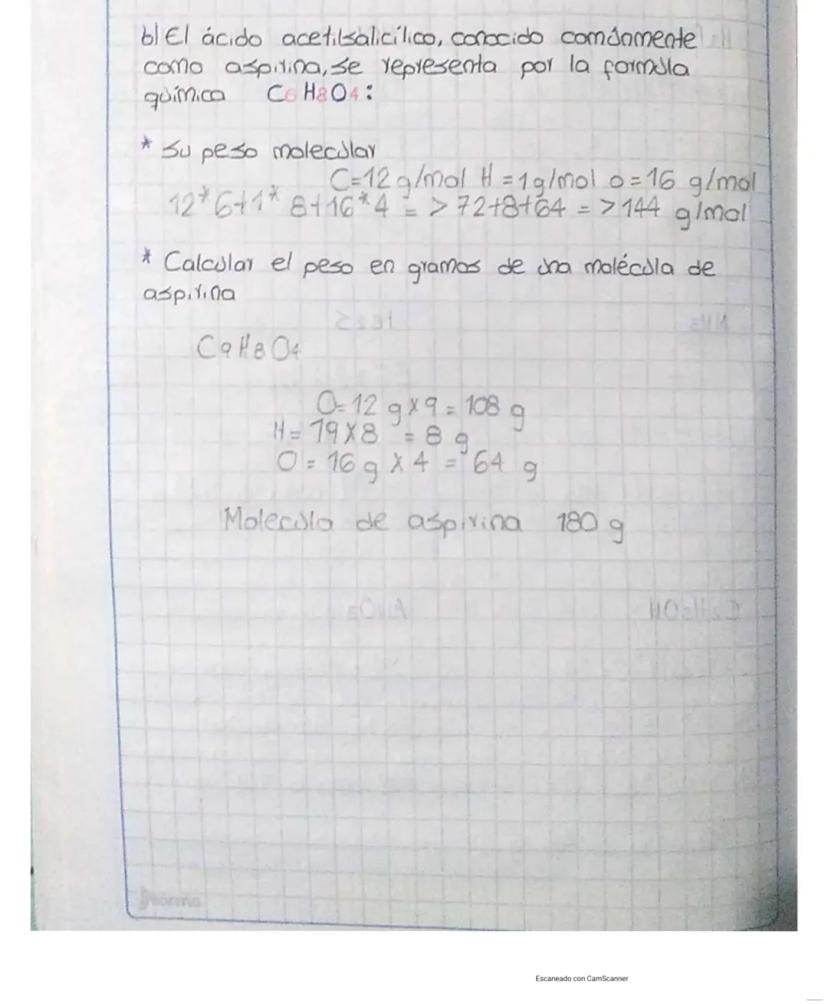 b) El ácido acetilsalicílico, conocido comúnmente
como aspirina, se representa por la formula
química C6H8O4:
* Su peso molecular
C=12 g/mol H=1g/mol O=16 g/mol
12*6+1*8+16*4 => 72+8+64 => 144 g/mol
* Calcular el peso en gramos de una molécula de
aspirina
C9H8O4
C=12 g x 9 = 108 g
H= 1g x 8 = 8 g
O = 16 g x 4 = 64 g
Molecula de aspirina 180 g
Norma
Escaneado con CamScanner